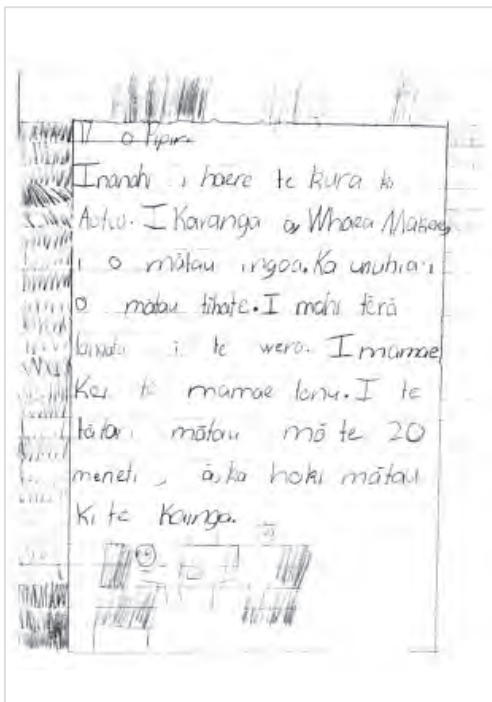 17 o Pipiri
Inanahi i haere te kura ki
I Karanga a Whaea
i o mātau ingoa. Ka unuhia i
o matau tihate. I mahi tērā
i te wero. I mamae
Kei te mamae tonu. I te
tātari mātau mō te 20
meneti, ā, ka hoki mātau
ki te Kainga.